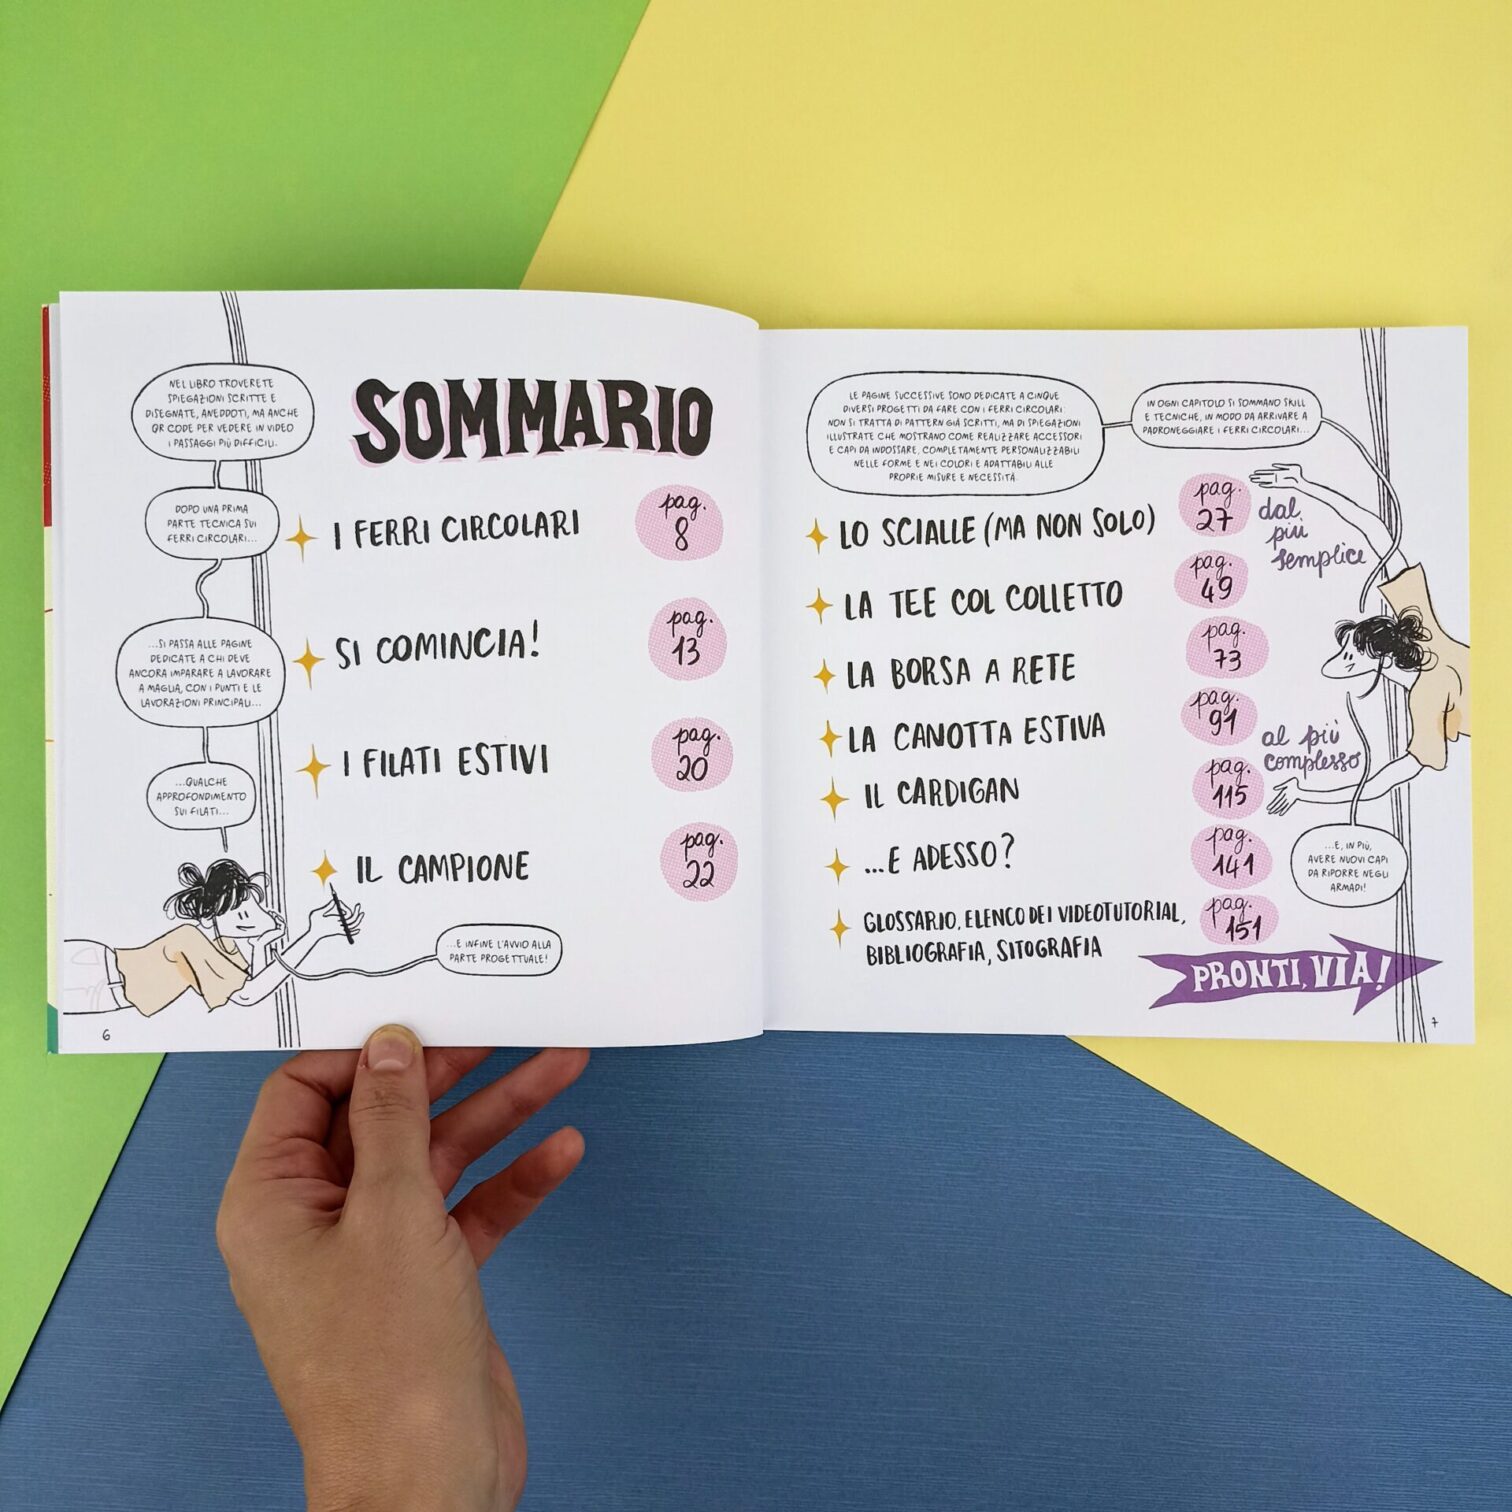 SOMMARIO
NEL LIBRO TROVERETE
SPIEGAZIONI SCRITTE E
DISEGNATE, ANEDDOTI, MA ANCHE
QR CODE PER VEDERE IN VIDEO
I PASSAGGI PIÙ DIFFICILI.
DOPO UNA PRIMA
PARTE TECNICA SUI
FERRI CIRCOLARI...
...SI PASSA ALLE PAGINE
DEDICATE A CHI DEVE
ANCORA IMPARARE A LAVORARE
A MAGLIA, CON I PUNTI E LE
LAVORAZIONI PRINCIPALI...
...QUALCHE
APPROFONDIMENTO
SUI FILATI...
...E INFINE L'AVVIO ALLA
PARTE PROGETTUALE!
I FERRI CIRCOLARI pag. 8
SI COMINCIA! pag. 13
I FILATI ESTIVI pag. 20
IL CAMPIONE pag. 22
6
LE PAGINE SUCCESSIVE SONO DEDICATE A CINQUE
DIVERSI PROGETTI DA FARE CON I FERRI CIRCOLARI:
NON SI TRATTA DI PATTERN GIÀ SCRITTI, MA DI SPIEGAZIONI
ILLUSTRATE CHE MOSTRANO COME REALIZZARE ACCESSORI
E CAPI DA INDOSSARE, COMPLETAMENTE PERSONALIZZABILI
NELLE FORME E NEI COLORI E ADATTABILI ALLE
PROPRIE MISURE E NECESSITÀ.
IN OGNI CAPITOLO SI SOMMANO SKILL
E TECNICHE, IN MODO DA ARRIVARE A
PADRONEGGIARE I FERRI CIRCOLARI...
LO SCIALLE (MA NON SOLO) pag. 27
dal
più
semplice
LA TEE COL COLLETTO pag. 49
LA BORSA A RETE pag. 73
LA CANOTTA ESTIVA pag. 91
al più
complesso
IL CARDIGAN pag. 115
...E ADESSO? pag. 141
GLOSSARIO, ELENCO DEI VIDEOTUTORIAL,
BIBLIOGRAFIA, SITOGRAFIA pag. 151
...E, IN PIÙ,
AVERE NUOVI CAPI
DA RIPORRE NEGLI
ARMADI!
PRONTI, VIA!
7